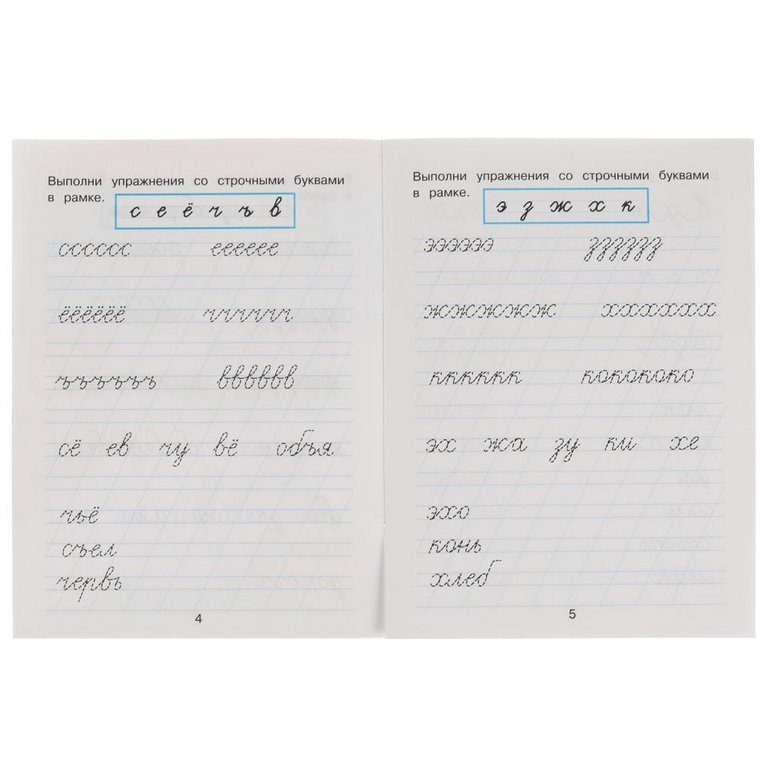 Выполни упражнения со строчными буквами
в рамке.
с е ё ч ъ в
сссссс ееееее
ёёёёёё чччччч
ъъъъъъ вввввв
сё ев чу вё объя
чьё
съел
червь
4
Выполни упражнения со строчными буквами
в рамке.
э з ж х к
ээээээ зззззз
жжжжжж хххххх
кккккк кокококо
эх жа зу ки хе
эхо
конь
хлеб
5